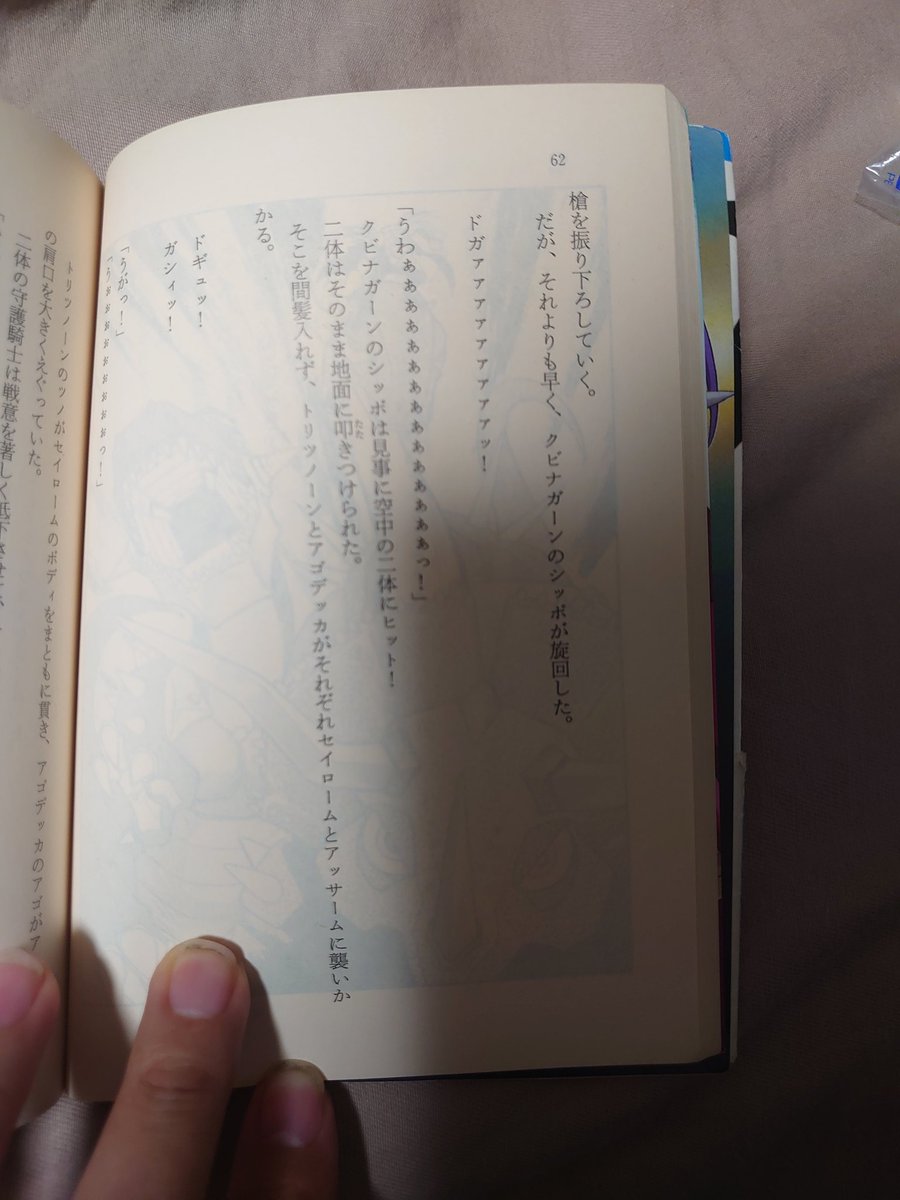 62
槍を振り下ろしていく。
だが、それよりも早く、クビナガーンのシッポが旋回した。
ドガァァァァァァァァッ!
「うわぁぁぁぁぁぁぁぁぁぁぁぁっ!」
クビナガーンのシッポは見事に空中の二体にヒット!
二体はそのまま地面に叩きつけられた。
たた
そこを間髪入れず、トリツノーンとアゴデッカがそれぞれセイロームとアッサームに襲いか
かる。
ドギュッ!
ガシィッ!
「うがっ!」
「うぉぉぉぉぉぉぉぉっ!」
トリツノーンのツノがセイロームのボディをまともに貫き、アゴデッカのアゴがア
の肩口を大きくえぐっていた。
二体の守護騎士は戦意を著しく低下させ